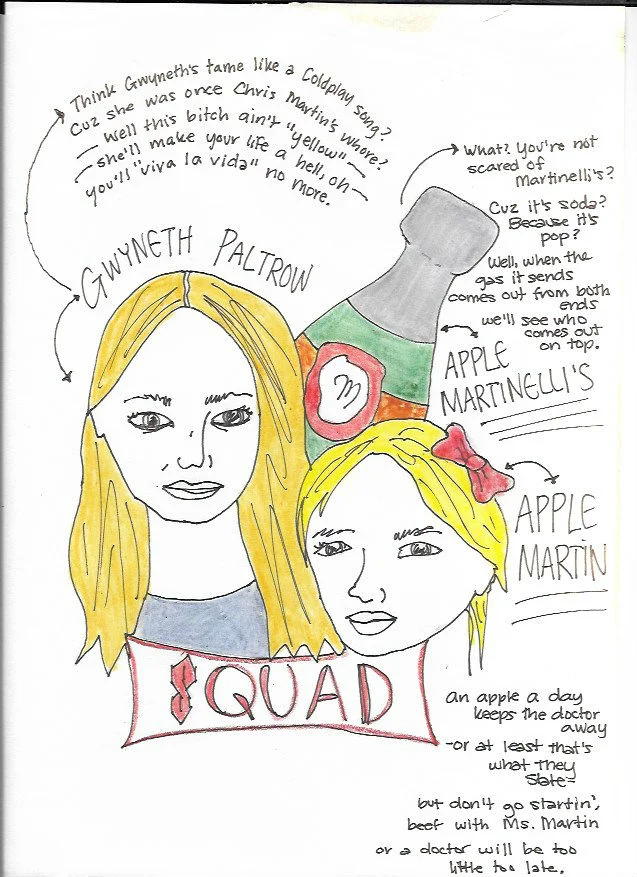 Think Gwyneth's tame like a Coldplay song?
Cuz she was once Chris Martin's whore?
— well this bitch ain't "yellow" —
— she'll make your life a hell, oh —
you'll "viva la vida" no more.
GWYNETH PALTROW
What? You're not
scared of
Martinelli's?
Cuz it's soda?
Because it's
pop?
Well, when the
gas it sends
comes out from both
ends
we'll see who
comes out
on top.
APPLE
MARTINELLI'S
M
APPLE
MARTIN
SQUAD
an apple a day
keeps the doctor
away
-or at least that's
what they
state-
but don't go startin',
beef with Ms. Martin
or a doctor will be too
little too late.